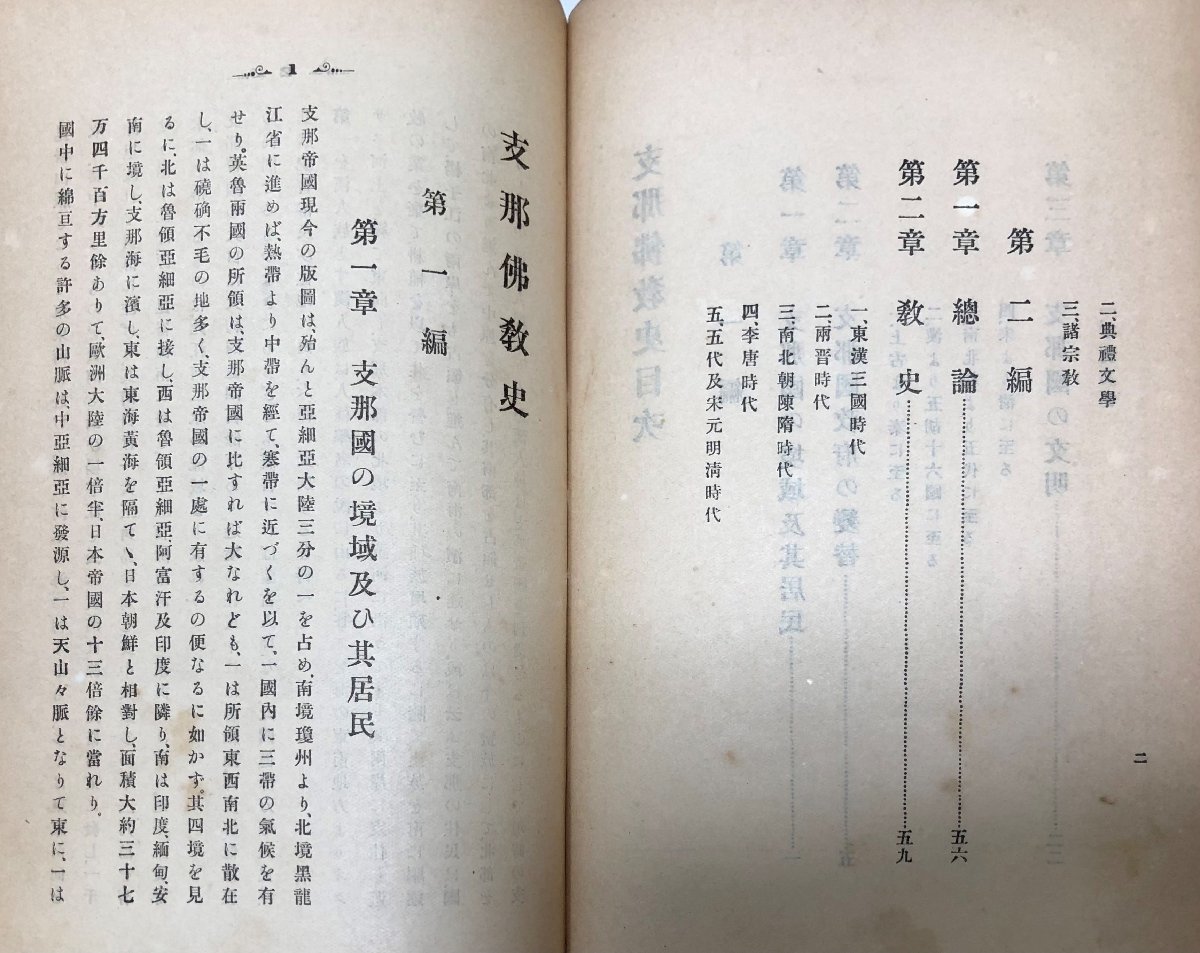 二、典禮文學
三、諸宗敎
第二編
第一章 總論……五六
第二章 敎史……五九
一、東漢三國時代
二、兩晋時代
三、南北朝陳隋時代
四、李唐時代
五、五代及宋元明淸時代
二
1
支那佛敎史
第一編
第一章 支那國の境域及ひ其居民
支那帝國現今の版圖は、殆んと亞細亞大陸三分の一を占め、南境瓊州より、北境黑龍
江省に進めば、熱帶より中帶を經て、寒帶に近づくを以て、一國內に三帶の氣候を有
せり。英魯兩國の所領は、支那帝國に比すれば大なれども、一は所領東西南北に散在
し、一は磽确不毛の地多く、支那帝國の一處に有するの便なるに如かず。其四境を見
るに、北は魯領亞細亞に接し、西は魯領亞細亞、阿富汗及印度に隣り、南は印度、緬甸、安
南に境し、支那海に濱し、東は東海黃海を隔てヽ、日本朝鮮と相對し、面積大約三十七
万四千百方里餘ありて、歐洲大陸の一倍半、日本帝國の十三倍餘に當れり。
國中に綿亘する許多の山脈は中亞細亞に發源し、一は天山々脈となりて東に、一は